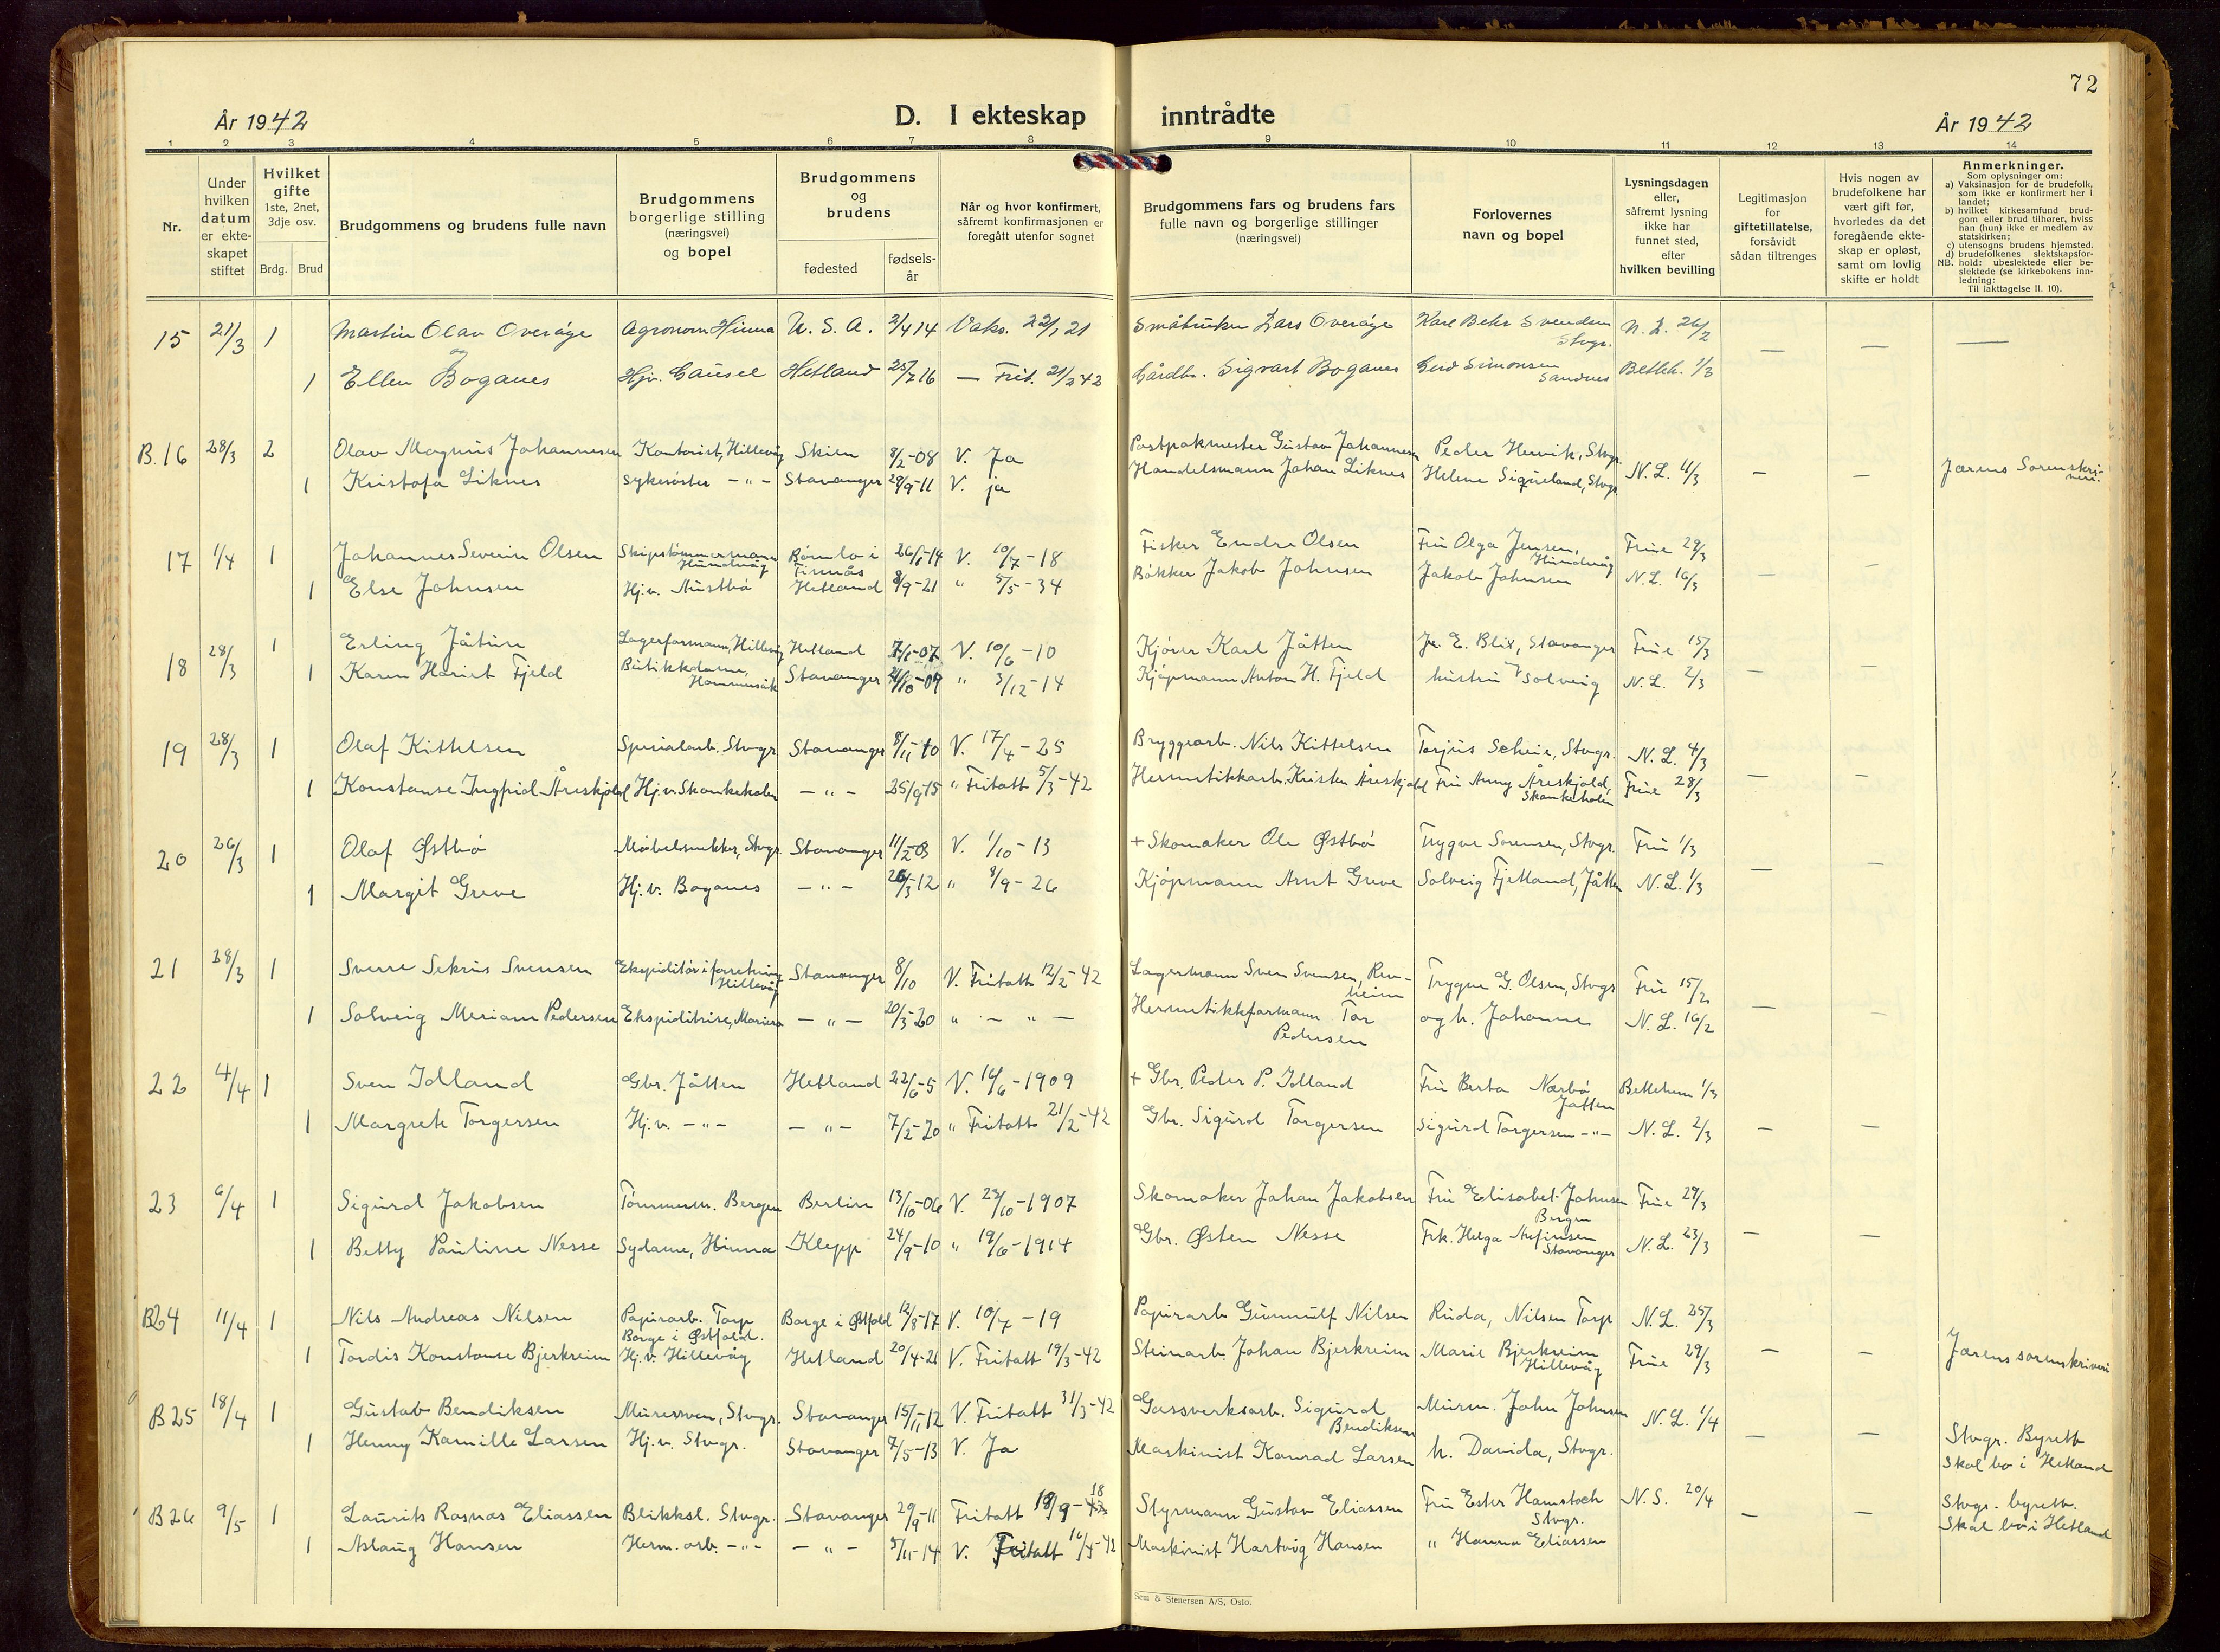 72
År 1942
D. I ekteskap inntrådte
År 1942
1 2 3 4 5 6 7 8 9 10 11 12 13 14
Nr.
Under hvilken datum er ekteskapet stiftet
Hvilket gifte 1ste, 2net, 3dje osv.
Brdg. Brud
Brudgommens og brudens fulle navn
Brudgommens borgerlige stilling (næringsvei) og bopel
Brudgommens og brudens
fødested
fødselsår
Når og hvor konfirmert, såfremt konfirmasjonen er foregått utenfor sognet
Brudgommens fars og brudens fars fulle navn og borgerlige stillinger (næringsvei)
Forlovernes navn og bopel
Lysningsdagen eller, såfremt lysning ikke har funnet sted, efter hvilken bevilling
Legitimasjon for giftetillatelse, forsåvidt sådan tiltrenges
Hvis nogen av brudefolkene har vært gift før, hvorledes da det foregående ekteskap er opløst, samt om lovlig skifte er holdt
Anmerkninger.
Som oplysninger om:
a) Vaksinasjon for de brudefolk, som ikke er konfirmert her i landet;
b) hvilket kirkesamfund brudgom eller brud tilhører, hviss han (hun) ikke er medlem av statskirken;
c) utensogns brudens hjemsted.
d) brudefolkenes slektskapsforhold: ubeslektede eller beslektede (se kirkebokens innledning:
NB. Til iakttagelse II. 10).
15 21/3 1 Martin Olav Overøye Agronom Hinna U. S. A. 2/4 14 Vaks. 22/1 21 Småbruker Lars Overøye Kåre Behr Svendsen Stvgr. N. L. 26/2 — —
og
1 Ellen Boganes Hjv. Gausel Hetland 25/7 16 — Frit. 21/2 42 Gårdbr. Sigvart Boganes Gerd Simonsen Sandnes Betleh. 1/3
B.16 28/3 2 Olav Magnus Johannesen Kontorist, Hillevåg Skien 8/2-08 V. Ja Postpakmester Gustav Johannesen Peder Hervik, Stvgr.
1 Kristofa Liknes Sykesøster -"- Stavanger 29/9-11 V. ja Handelsmann Johan Liknes Helene Sigveland, Stvgr. N. L. 4/3 — — Jærens Sorenskriveri.
17 1/4 1 Johannes Severin Olsen Skipstømmermann Hundvåg Bømlo i Finnås 26/1-14 V. 10/7-18 Fisker Endre Olsen Fru Olga Jensen, Hundvåg Frue 29/3
1 Else Johnsen Hj.v. Austbø Hetland 8/9-21 " 5/5-34 Bakker Jakob Johnsen Jakob Johnsen N. L. 16/3 — —
18 28/3 1 Erling Jåtun Lagerformann, Hillevåg Hetland 7/1-07 V. 10/6-10 Kjører Karl Jåtten Jr. E. Blix, Stavanger Frue 15/3
1 Karen Hariet Fjeld Butikkdame, Stavanger " 3/12-14 Kjøpmann Anton H. Fjeld hustru Solveig N. L. 2/3 — —
19 28/3 1 Olaf Kittelsen Spesialarb. Stvgr. Stavanger 8/11-10 V. 17/4-25 Bryggearb. Nils Kittelsen Torjus Scheie, Stvgr. N. L. 4/3
1 Konstanse Ingfrid Åreskjold Hj.v. Skankeholen -"- 25/9-15 " Fritatt 5/3-42 Hermetikkarb. Kristen Åreskjold Fru Anny Åreskjold, Skankeholen Frue 28/3 — —
20 26/3 1 Olaf Østbø Møbelsnekker, Stvgr. Stavanger 11/2-03 V. 1/10-13 + Skomaker Ole Østbø Trygve Sørensen, Stvgr. Fru 1/3
1 Margit Greve Hj.v. Boganes -"- 26/3-12 " 8/9-26 Kjøpmann Arnt Greve Solveig Fjetland, Jåtten N. L. 1/3 — —
21 28/3 1 Sverre Sekrus Svensen Ekspeditør i forretning Hillevåg Stavanger 8/10 V. Fritatt 12/2-42 Lagermann Sven Svensen, Renheim Trygve G. Olsen, Stvgr Fru 15/2
1 Solveig Meriam Pedersen Ekspeditrise, Mariero -"- 20/3-20 " - " - Hermetikkformann Tor Pedersen og h. Johanne N. L. 16/2 — —
22 4/4 1 Sven Idland Gbr. Jåtten Hetland 22/6-5 V. 14/6-1909 + Gbr. Peder P. Idland Fru Berta Nærbø Jåtten Bethlehem 1/3
1 Margrete Torgersen Hj.v. -"- -"- 7/2-20 " Fritatt 21/2-42 Gbr. Sigurd Torgersen Sigurd Torgersen -"- N. L. 2/3 — —
23 6/4 1 Sigurd Jakobsen Tømmerm. Bergen Berlin 13/10-06 V. 23/10-1907 Skomaker Johan Jakobsen Fru Elisabet Johnsen Bergen Frue 29/3
1 Betty Pauline Nesse Sydame, Hinna Klepp 24/9-10 " 19/6-1914 Gbr. Østen Nesse Frk. Helga Aufinsen Stavanger N. L. 23/3 — —
B24 11/4 1 Nils Andreas Nilsen Papirarb. Torp Borge i Østfold. Borge i Østfold 12/8-17 V. 10/7-19 Papirarb. Gunnulf Nilsen Ruda, Nilsen Torp N. L. 25/3
1 Tordis Konstanse Bjerkreim Hj.v. Hillevåg Hetland 20/4-21 V. Fritatt 19/3-42 Steinarb. Johan Bjerkreim Marie Bjerkreim Hillevåg Frue 29/3 — — Jærens sorenskriveri
B25 18/4 1 Gustav Bendiksen Muresven, Stvgr. Stavanger 15/11-12 V. Fritatt 31/3-42 Gassverksarb. Sigurd Bendiksen Murm. John Johnsen N. L. 1/4
1 Henny Kamille Larsen Hj.v. Stvgr. Stavanger 7/5-13 V. Ja Maskinist Konrad Larsen h. Davida, Stvgr. — — Stvgr. Byrett Skal bo i Hetland
B26 9/5 1 Laurits Rasnas Eliassen Blikksl. Stvgr. Stavanger 29/9-11 Fritatt 18/9-18 Styrmann Gustav Eliassen Fru Ester Hamstoch Stvgr. N. S. 20/4 Stvgr. byrett.
1 Aslaug Hansen Herm. arb. -"- -"- 5/11-14 V. Fritatt 16/4-42 Maskinist Hartvig Hansen " Hanna Eliassen — — Skal bo i Hetland
Sem & Stenersen A/S, Oslo.